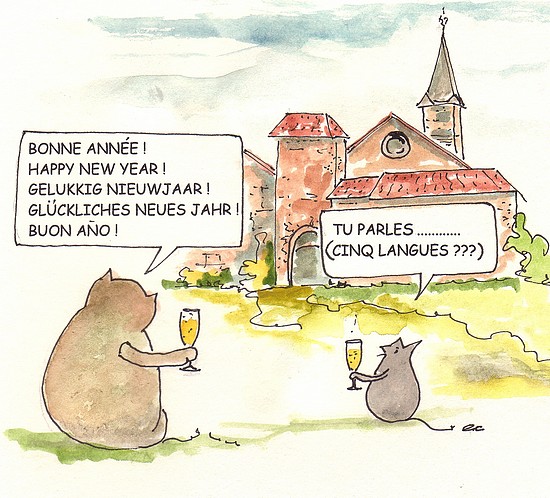 BONNE ANNÉE !
HAPPY NEW YEAR !
GELUKKIG NIEUWJAAR !
GLÜCKLICHES NEUES JAHR !
BUON AÑO !
TU PARLES ............
(CINQ LANGUES ???)